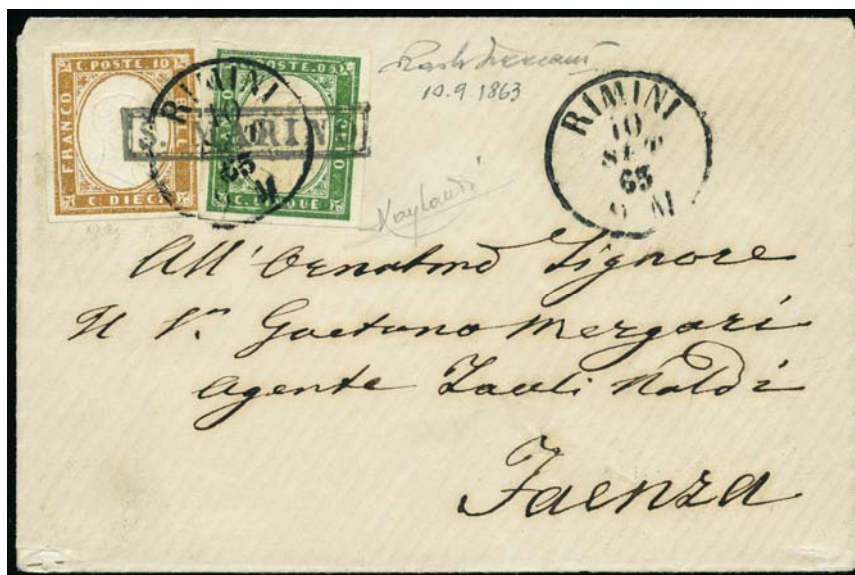 C. POSTE. 10
FRANCO
C. DIECI
C. POSTE. 05
C. CINQUE
S. MARINO
RIMINI
10
SET
63
RIMINI
10
SET
63
10.9.1863
All' Ornatmo Signore
Il Sr. Gaetano Mergari
Agente Zauli Naldi
Faenza